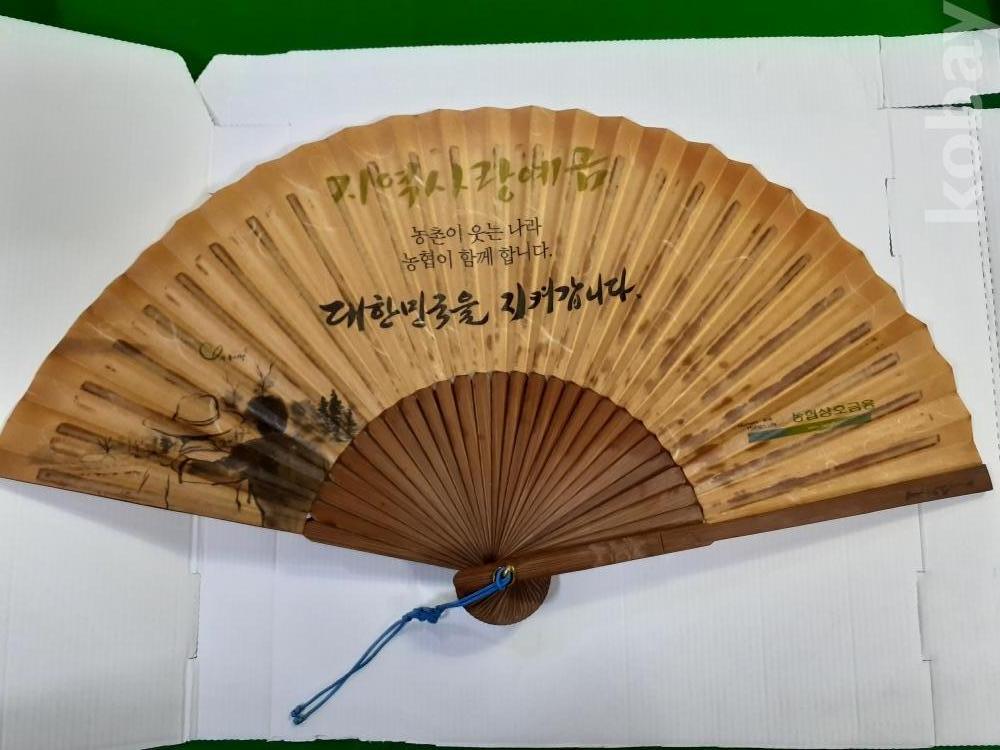 지역사랑예금
농촌이 웃는 나라
농협이 함께 합니다.
대한민국을 지켜갑니다.
농협상호금융
kobay